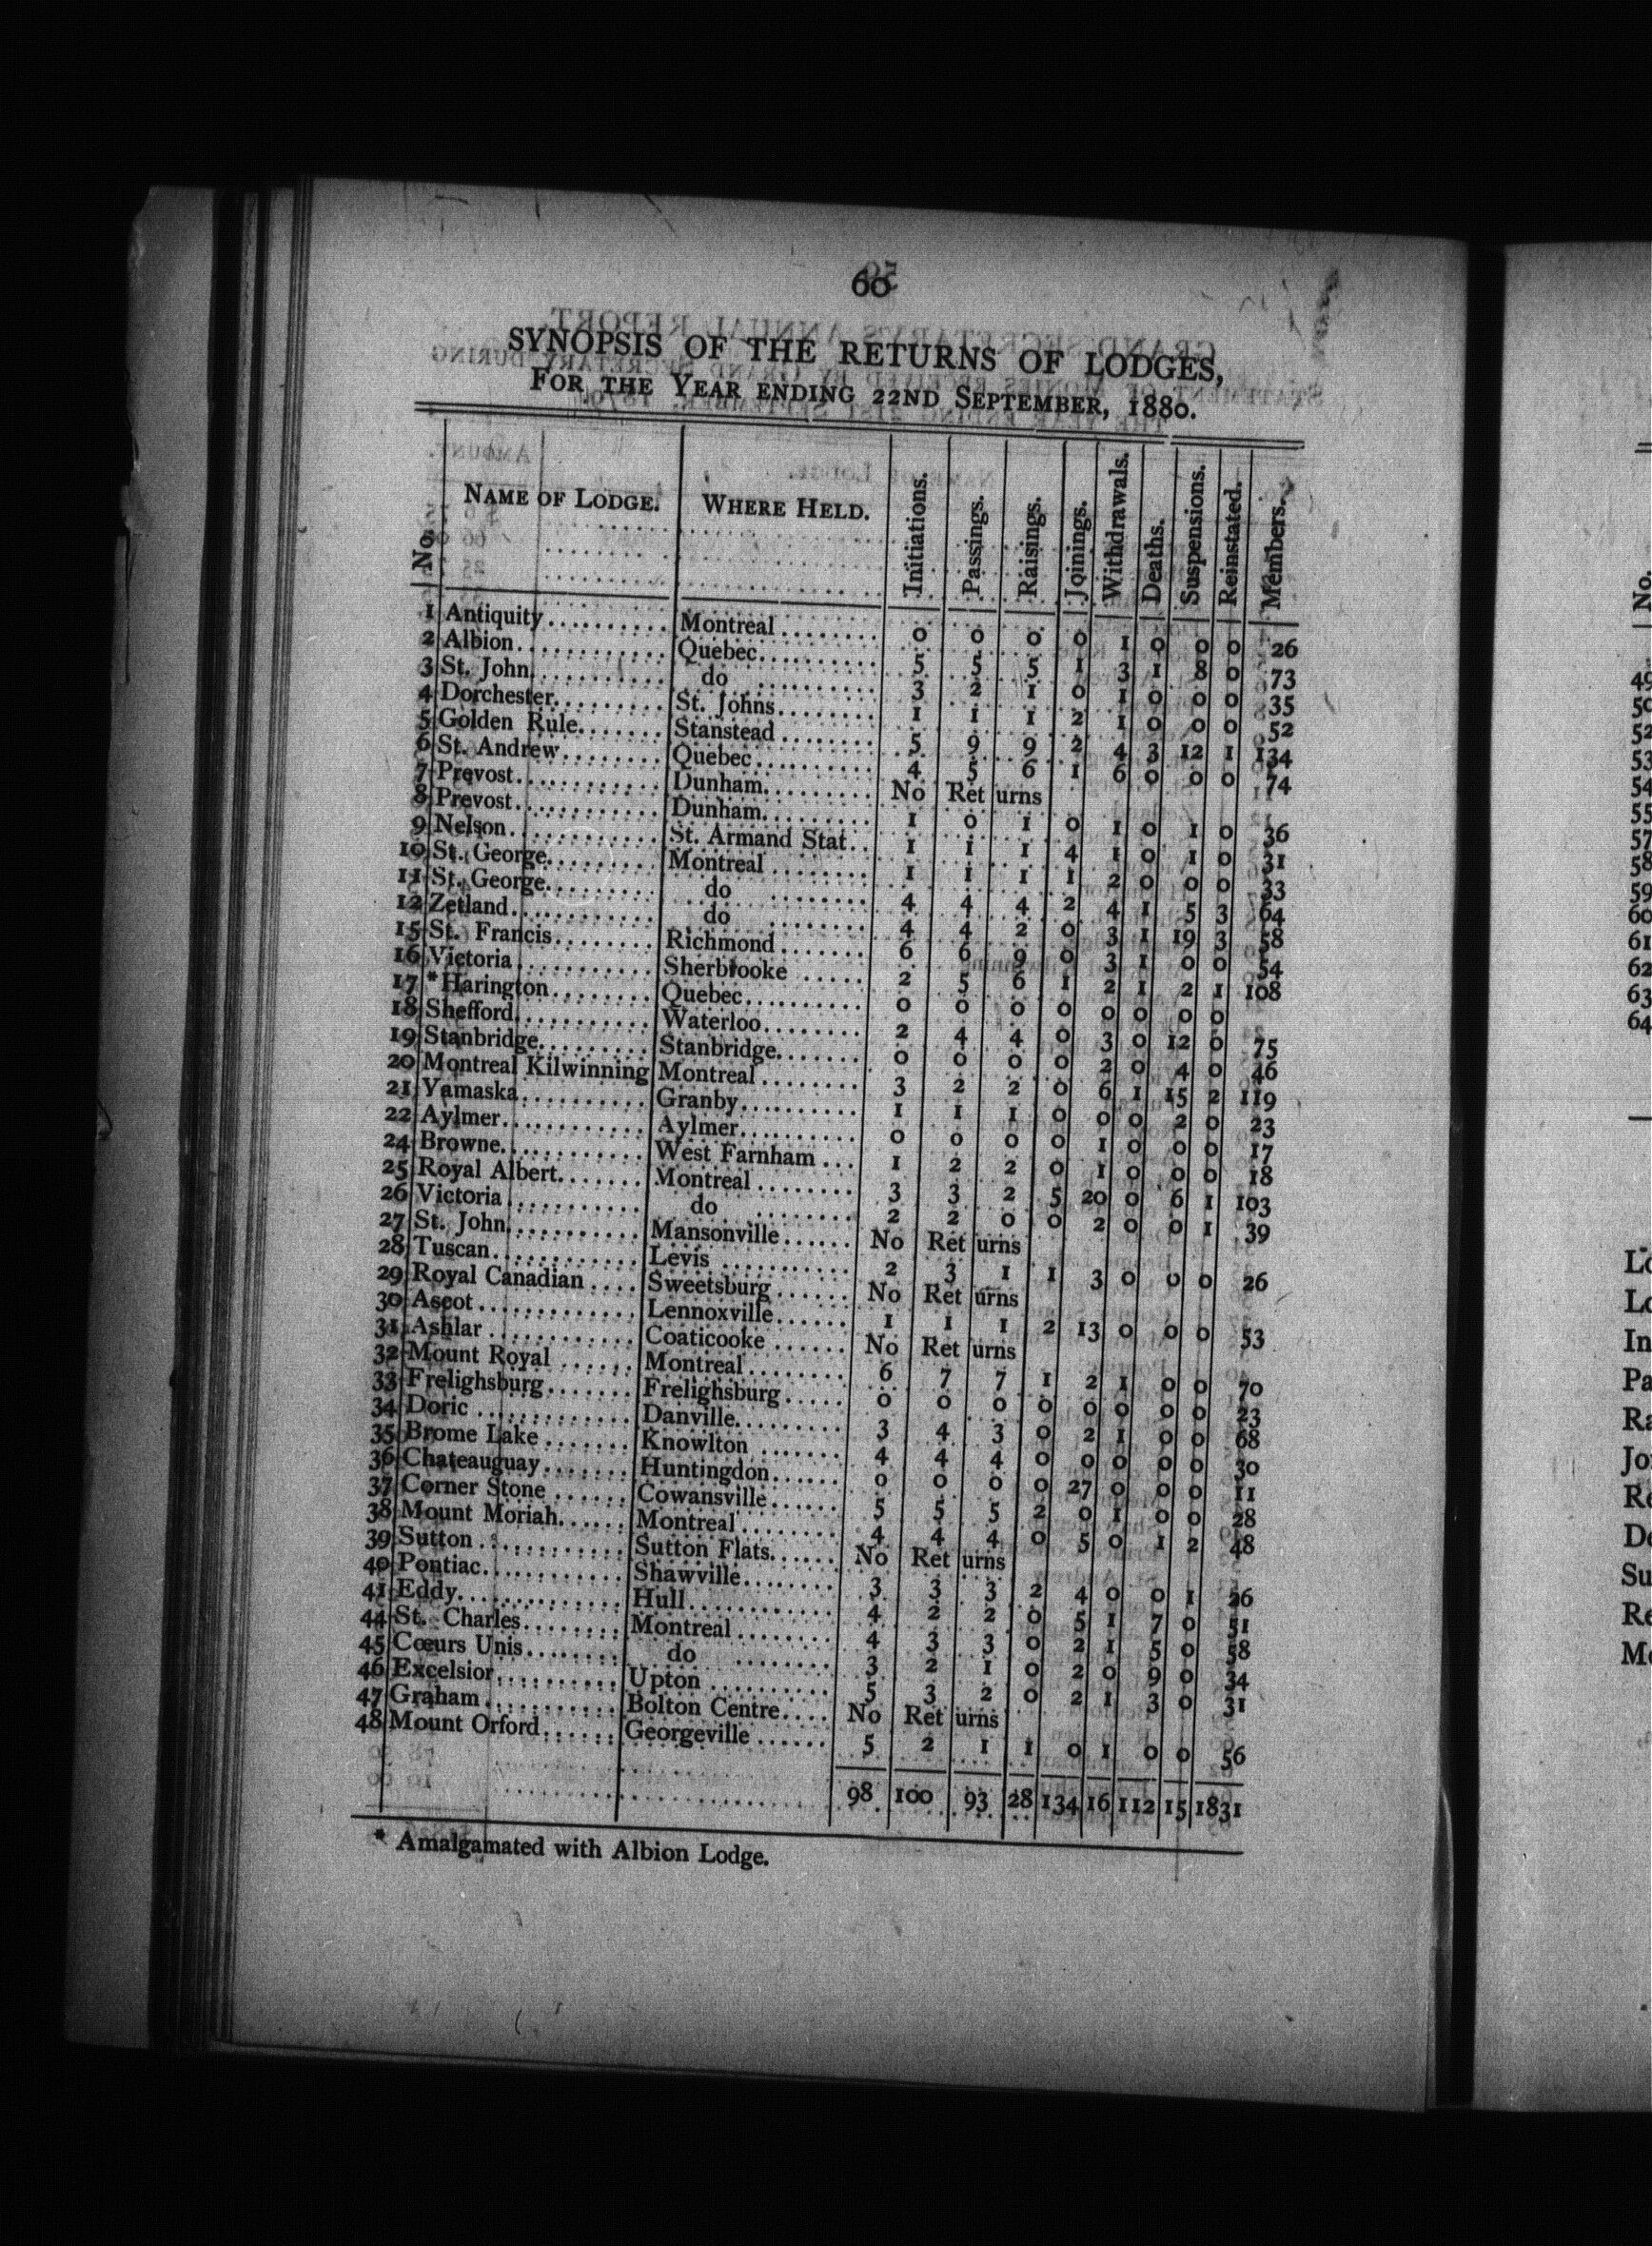 60
SYNOPSIS OF THE RETURNS OF LODGES,
FOR THE YEAR ENDING 22ND SEPTEMBER, 1880.
No. NAME OF LODGE. WHERE HELD. Initiations. Passings. Raisings. Joinings. Withdrawals. Deaths. Suspensions. Reinstated. Members.
1 Antiquity.......... Montreal........ 0 0 0 0 1 0 0 0 26
2 Albion............ Quebec.......... 5 5 5 1 3 1 8 0 73
3 St. John........... do .......... 3 2 1 0 1 0 0 0 35
4 Dorchester......... St. Johns........ 1 1 1 2 1 0 0 0 52
5 Golden Rule....... Stanstead........ 5 9 9 2 4 3 12 1 134
6 St. Andrew........ Quebec.......... 4 5 6 1 6 0 0 0 74
7 Prevost............ Dunham......... No Returns
8 Prevost............ Dunham......... 1 0 1 0 1 0 1 0 36
9 Nelson............. St. Armand Stat.. 1 1 1 4 1 0 1 0 31
10 St. George......... Montreal........ 1 1 1 1 2 0 0 0 33
11 St. George......... do ........ 4 4 4 2 4 1 5 3 64
12 Zetland............ do ........ 4 4 2 0 3 1 19 3 58
15 St. Francis........ Richmond....... 6 6 9 0 3 1 0 0 54
16 Victoria........... Sherbrooke ..... 2 5 6 1 2 1 2 1 108
17 *Harington........ Quebec.......... 0 0 0 0 0 0 0 0
18 Shefford........... Waterloo........ 2 4 4 0 3 0 12 0 75
19 Stanbridge......... Stanbridge....... 0 0 0 0 2 0 4 0 46
20 Montreal Kilwinning Montreal........ 3 2 2 0 6 1 15 2 119
21 Yamaska.......... Granby.......... 1 1 1 0 0 0 2 0 23
22 Aylmer............ Aylmer.......... 0 0 0 0 1 0 0 0 17
24 Browne............ West Farnham... 1 2 2 0 1 0 0 0 18
25 Royal Albert....... Montreal........ 3 3 2 5 20 0 6 1 103
26 Victoria........... do ........ 2 2 0 0 2 0 0 1 39
27 St. John........... Mansonville...... No Returns
28 Tuscan............ Levis ........... 2 3 1 1 3 0 0 0 26
29 Royal Canadian.... Sweetsburg...... No Returns
30 Ascot............. Lennoxville...... 1 1 1 2 13 0 0 0 53
31 Ashlar............ Coaticooke...... No Returns
32 Mount Royal...... Montreal........ 6 7 7 1 2 1 0 0 70
33 Frelighsburg....... Frelighsburg..... 0 0 0 0 0 0 0 0 23
34 Doric............. Danville......... 3 4 3 0 2 1 0 0 68
35 Brome Lake....... Knowlton ....... 4 4 4 0 0 0 0 0 30
36 Chateauguay....... Huntingdon...... 0 0 0 0 27 0 0 0 11
37 Corner Stone...... Cowansville...... 5 5 5 2 0 1 0 0 28
38 Mount Moriah...... Montreal........ 4 4 4 0 5 0 1 2 48
39 Sutton............ Sutton Flats...... No Returns
40 Pontiac............ Shawville........ 3 3 3 2 4 0 0 1 26
41 Eddy.............. Hull............ 4 2 2 0 5 1 7 0 51
44 St. Charles........ Montreal........ 4 3 3 0 2 1 5 0 58
45 Cœurs Unis........ do ........ 3 2 1 0 2 0 9 0 34
46 Excelsior.......... Upton .......... 5 3 2 0 2 1 3 0 31
47 Graham........... Bolton Centre.... No Returns
48 Mount Orford...... Georgeville...... 5 2 1 1 0 1 0 0 56
98 100 93 28 134 16 112 15 1831
* Amalgamated with Albion Lodge.
No.
49
50
52
53
54
55
57
58
59
60
61
62
63
64